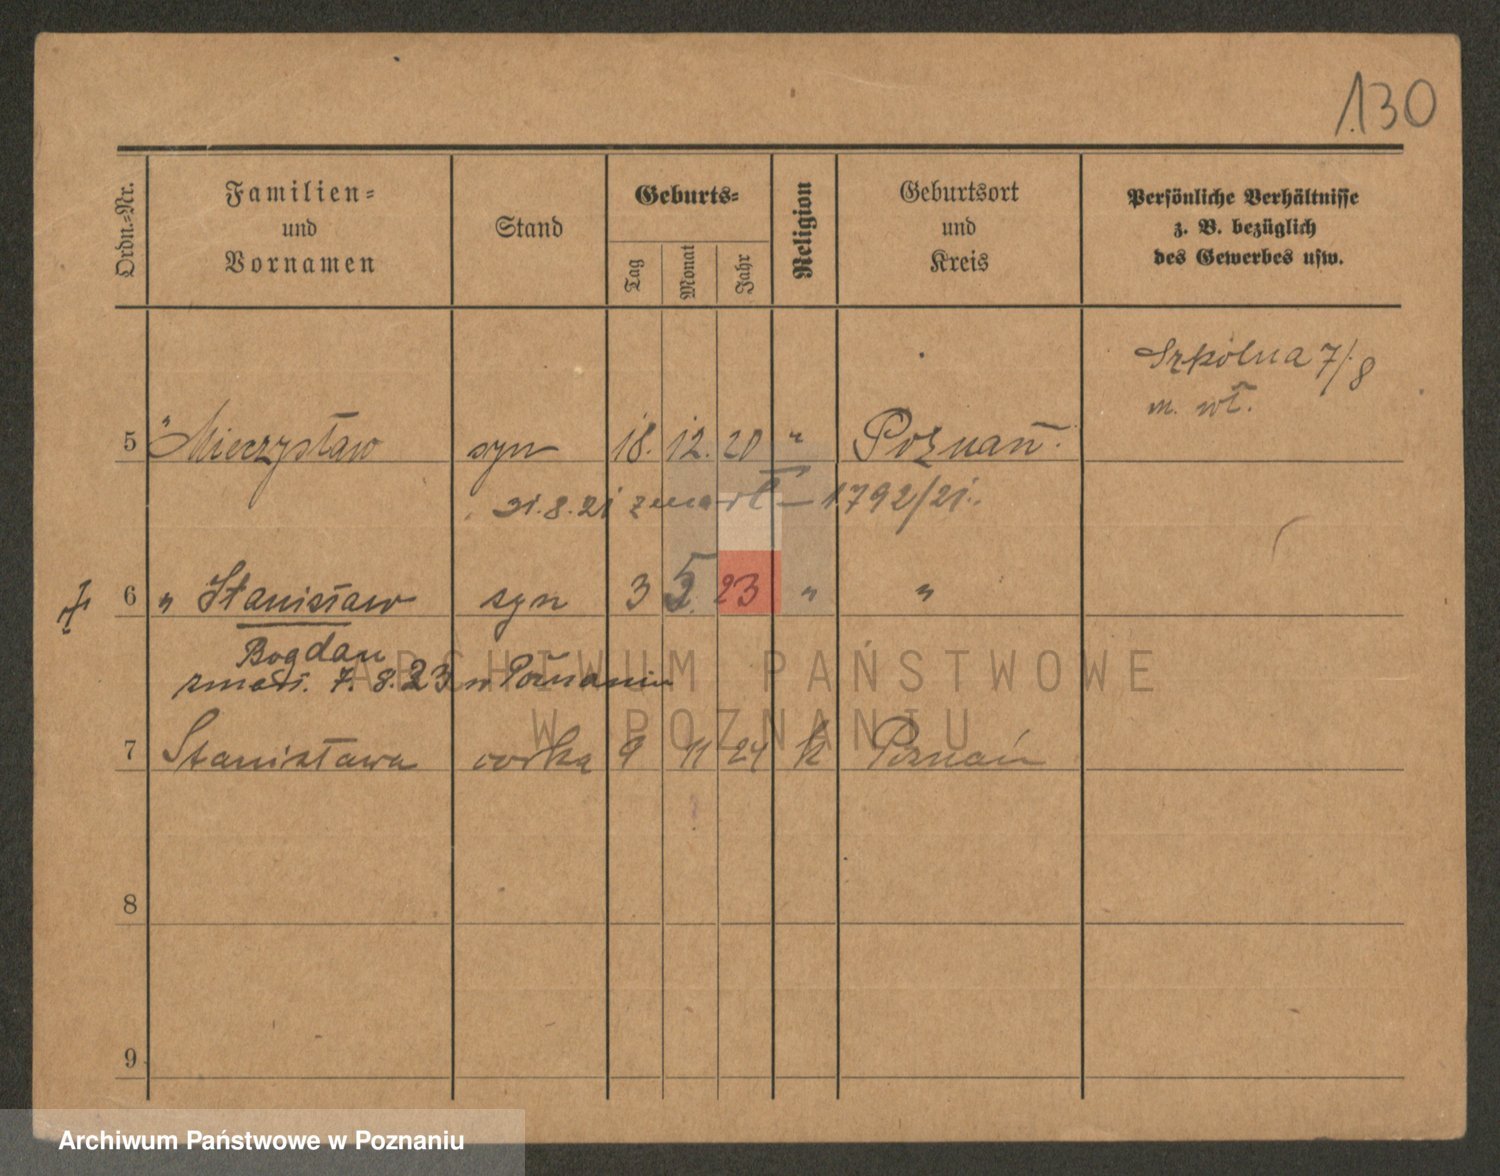 130
Ordn.-Nr. Familien- und Vornamen Stand Geburts- Tag Monat Jahr Religion Geburtsort und Kreis Persönliche Verhältnisse z. B. bezüglich des Gewerbes usw.
Szkolna 7/8
m. wł.
5 " Mieczysław syn 18. 12. 20 " Poznań.
31.8.21 zmarł – 1792/21.
6 " Stanisław syn 3 5 23 " "
Bogdan
zmarł. 7. 8. 23 w Poznaniu
ARCHIWUM PAŃSTWOWE
W POZNANIU
7 Stanisława córka 9 11 24 k Poznań
8
9
Archiwum Państwowe w Poznaniu